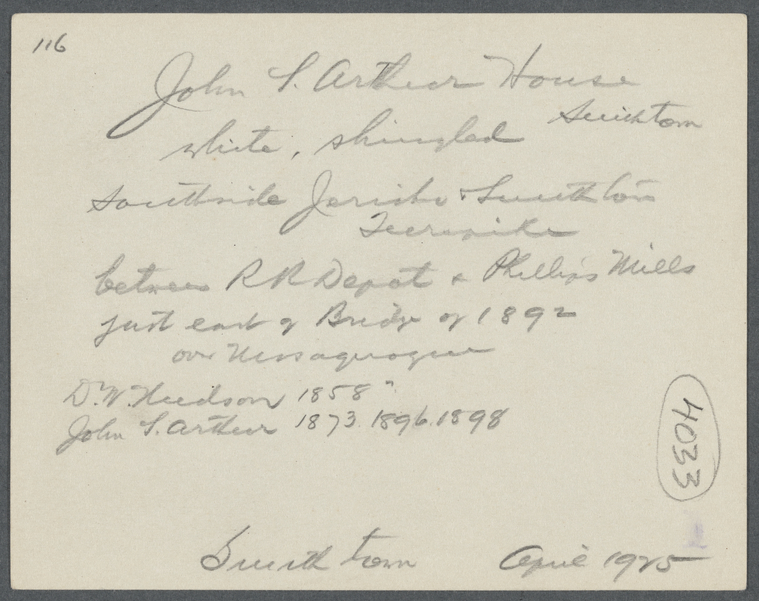 116
John S. Arthur House
Smithtown
white, shingled
Southside Jericho & Smithtown
Turnpike
between RR Depot & Phillips Mills
just east of Bridge of 1892
over Nissaquogue
D.W. Hudson 1858
John S. Arthur 1873. 1896. 1898
4033
Smithtown April 1925